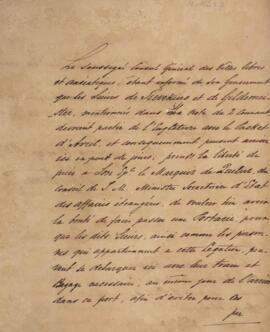 Le Soussigné Consul Général des Villes libres
et anséatiques, étant informé de son Gouvernement
que les Sieurs de Sieveking et de Gildemeis-
ter, mentionnés dans sa Note du 2 Courant,
devront partir de l'Angleterre avec le Paquet
d'Avril, et conséquemment pouvant arriver
ici en peu de jours; prend la liberté de
prier à Son Exc. le Marquis de
Conseil de S. M. Ministre Secrétaire d'Etat
des affaires étrangères, de vouloir bien avoir
la bonté de faire passer une Portarie pour
que les dits Sieurs, ainsi comme les person-
nes qui appartiennent à cette Légation, peu-
vent se débarquer ici avec leur train et
Bagage nécessaire, au même jour de l'arrivée
dans ce port, afin d'éviter pour ces